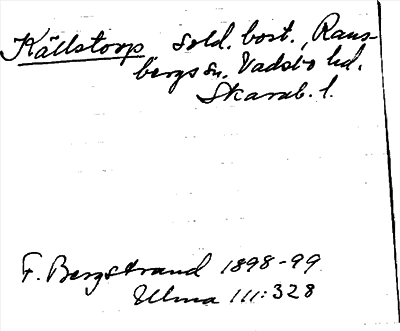 Källstorp, sold. bost., Rans-
bergs sn, Vadsbo hd.
Skarab. l.
F. Bergstrand 1898-99
Ulma 111:328